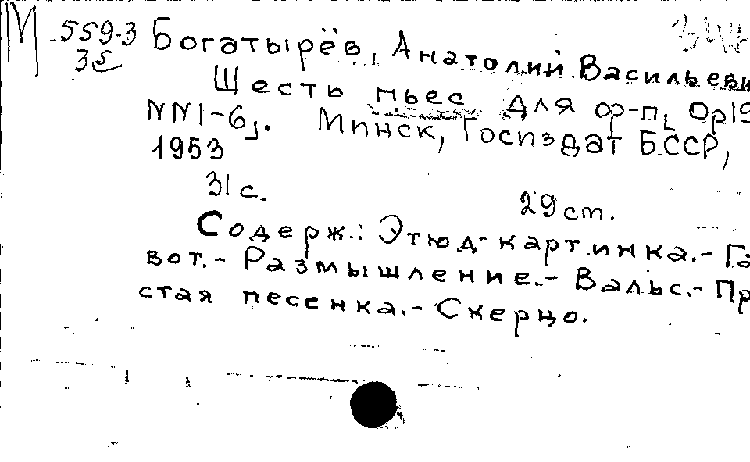 М 559-3 Богатырёв, Анатолий Васильеви
35 Шесть пьес для ф-п, Op19
NN1-6. Минск, Госиздат БССР,
1953
31 с. 29 cm.
Содерж.: Этюд-картинка.- Га
вот.- Размышление.- Вальс.- Пр
стая песенка.- Скерцо.